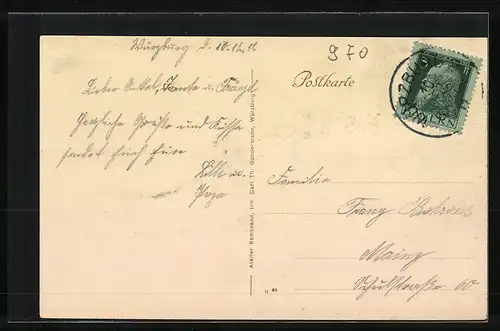 Würzburg d. 10.12.12
970
Lieber Onkel, Tante u. Franzl
Herzliche Grüße und Küsse
sendet Euch Eure
Lilli u.
Postkarte
Familie
Franz
Mainz
Schulstraße 60
Atelier Rembrand, Inh. Carl Th. Gundermann, Würzburg